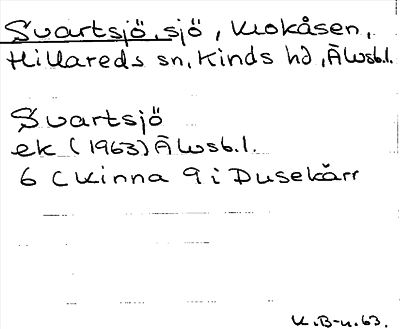 Svartsjö, sjö, Krokåsen,
Hillareds sn, Kinds hd, Älvsb.l.
Svartsjö
ek (1963) Älvsb.l.
6 C Kinna 9 i Dusekärr
K.B-n.63.